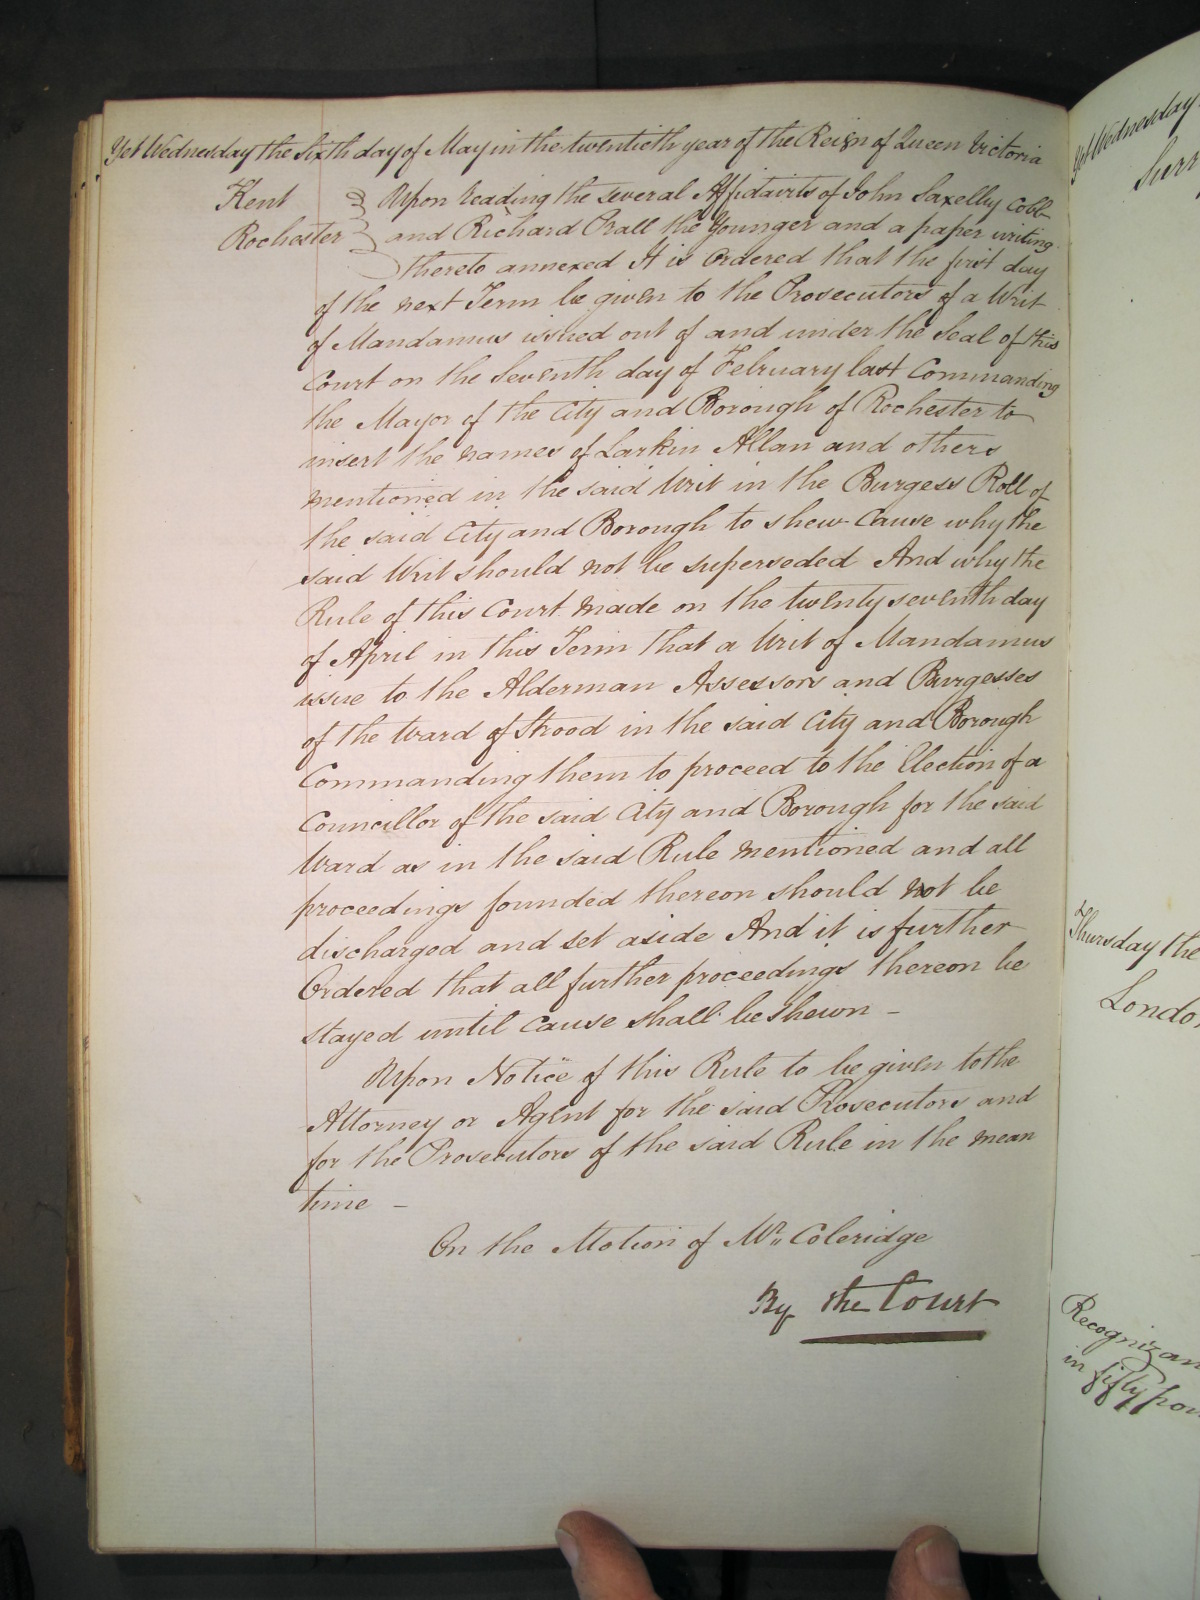 Yet Wednesday the sixth day of May in the twentieth year of the Reign of Queen Victoria
Kent
Rochester
Upon reading the several Affidavits of John Saxelby Cobb
and Richard Prall the Younger and a paper writing
thereto annexed It is Ordered that the first day
of the next Term be given to the Prosecutors of a Writ
of Mandamus issued out of and under the Seal of this
Court on the Seventh day of February last Commanding
the Mayor of the City and Borough of Rochester to
insert the names of Larkin Allan and others
mentioned in the said Writ in the Burgess Roll of
the said City and Borough to shew Cause why the
said Writ should not be superseded And why the
Rule of this Court made on the twenty seventh day
of April in this Term that a Writ of Mandamus
issue to the Alderman Assessors and Burgesses
of the Ward of Strood in the said City and Borough
Commanding them to proceed to the Election of a
Councillor of the said City and Borough for the said
Ward as in the said Rule mentioned and all
proceedings founded thereon should not be
discharged and set aside And it is further
Ordered that all further proceedings thereon be
stayed until cause shall be shewn -
Upon Notice of this Rule to be given to the
Attorney or Agent for the said Prosecutors and
for the Prosecutors of the said Rule in the mean
time -
On the Motion of Mr. Coleridge
By the Court
Yet Wednesday
Surr
Thursday the
Londo
Recognizan
in fifty pou